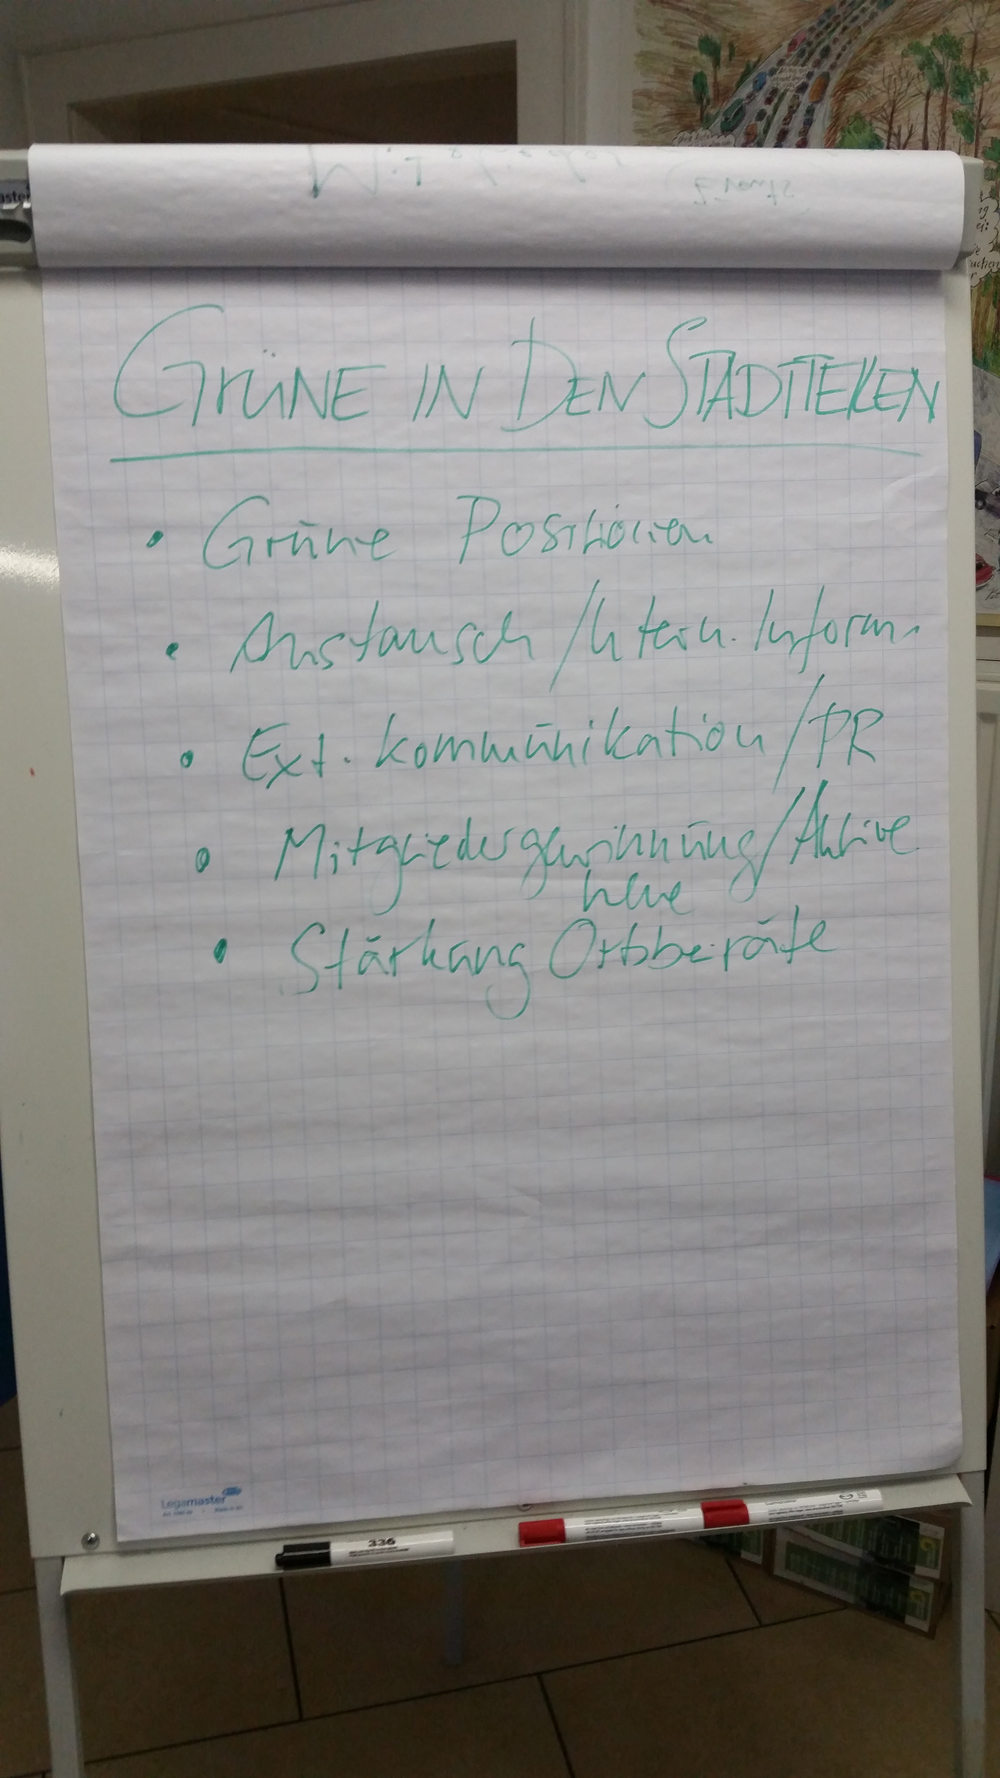 GRÜNE IN DEN STADTTEILEN
• Grüne Positionen
• Austausch / Intern. Inform.
• Ext. Kommunikation / PR
• Mitgliedergewinnung / Aktive
neue
• Stärkung Ortsbeiräte
Legamaster
336